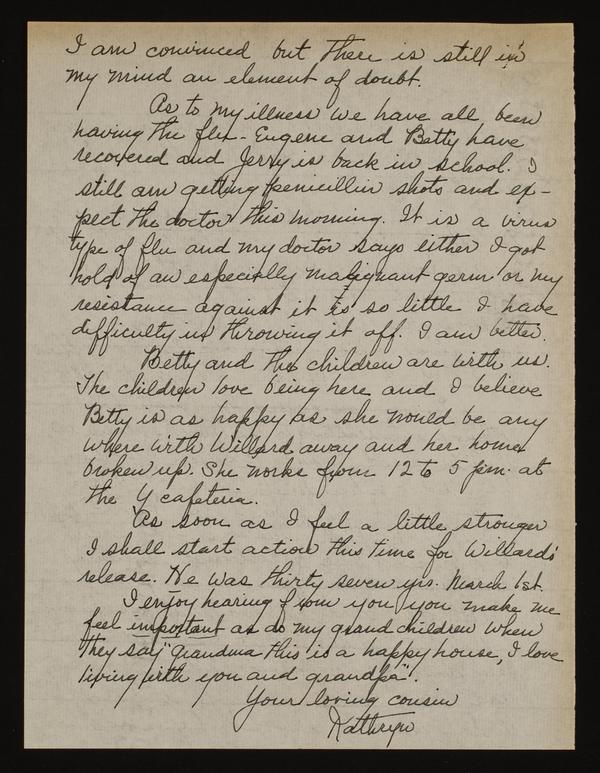 I am convinced but there is still in
my mind an element of doubt.
As to my illness we have all been
having the flu - Eugene and Betty have
recovered and Jerry is back in school. I
still am getting penicillin shots and ex-
pect the doctor this morning. It is a virus
type of flu and my doctor says either I got
hold of an especially malignant germ or my
resistance against it is so little I have
difficulty in throwing it off. I am better.
Betty and the children are with us.
The children love being here and I believe
Betty is as happy as she would be any
where with Willard away and her home
broken up. She works from 12 to 5 p.m. at
the Y cafeteria.
As soon as I feel a little stronger
I shall start action this time for Willard's
release. He was thirty seven yrs. March 1st.
I enjoy hearing from you, you make me
feel important as do my grand children when
they say "Grandma this is a happy house, I love
living with you and grandpa".
Your loving cousin
Kathryn